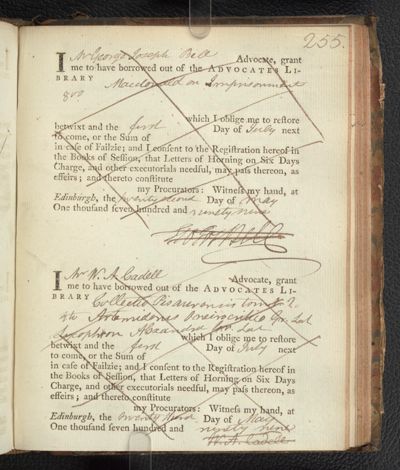 255.
I Mr George Joseph Bell Advocate, grant
me to have borrowed out of the ADVOCATES LI-
BRARY Macdonald on Imprisonment
8vo
which I oblige me to restore
betwixt and the first Day of July next
to come, or the Sum of
in case of Failzie; and I consent to the Registration hereof in
the Books of Session, that Letters of Horning on Six Days
Charge, and other executorials needful, may pass thereon, as
effeirs; and thereto constitute
my Procurators: Witness my hand, at
Edinburgh, the twenty second Day of May
One thousand seven hundred and ninety nine
Geo Jos Bell
I Mr W. A. Cadell Advocate, grant
me to have borrowed out of the ADVOCATES LI-
BRARY Collectio Pisaurensis tom.
4to Artemidorus Gr. Lat
Gr. Lat which I oblige me to restore
betwixt and the first Day of July next
to come, or the Sum of
in case of Failzie; and I consent to the Registration hereof in
the Books of Session, that Letters of Horning on Six Days
Charge, and other executorials needful, may pass thereon, as
effeirs; and thereto constitute
my Procurators: Witness my hand, at
Edinburgh, the twenty third Day of May
One thousand seven hundred and ninety nine
W. A. Cadell